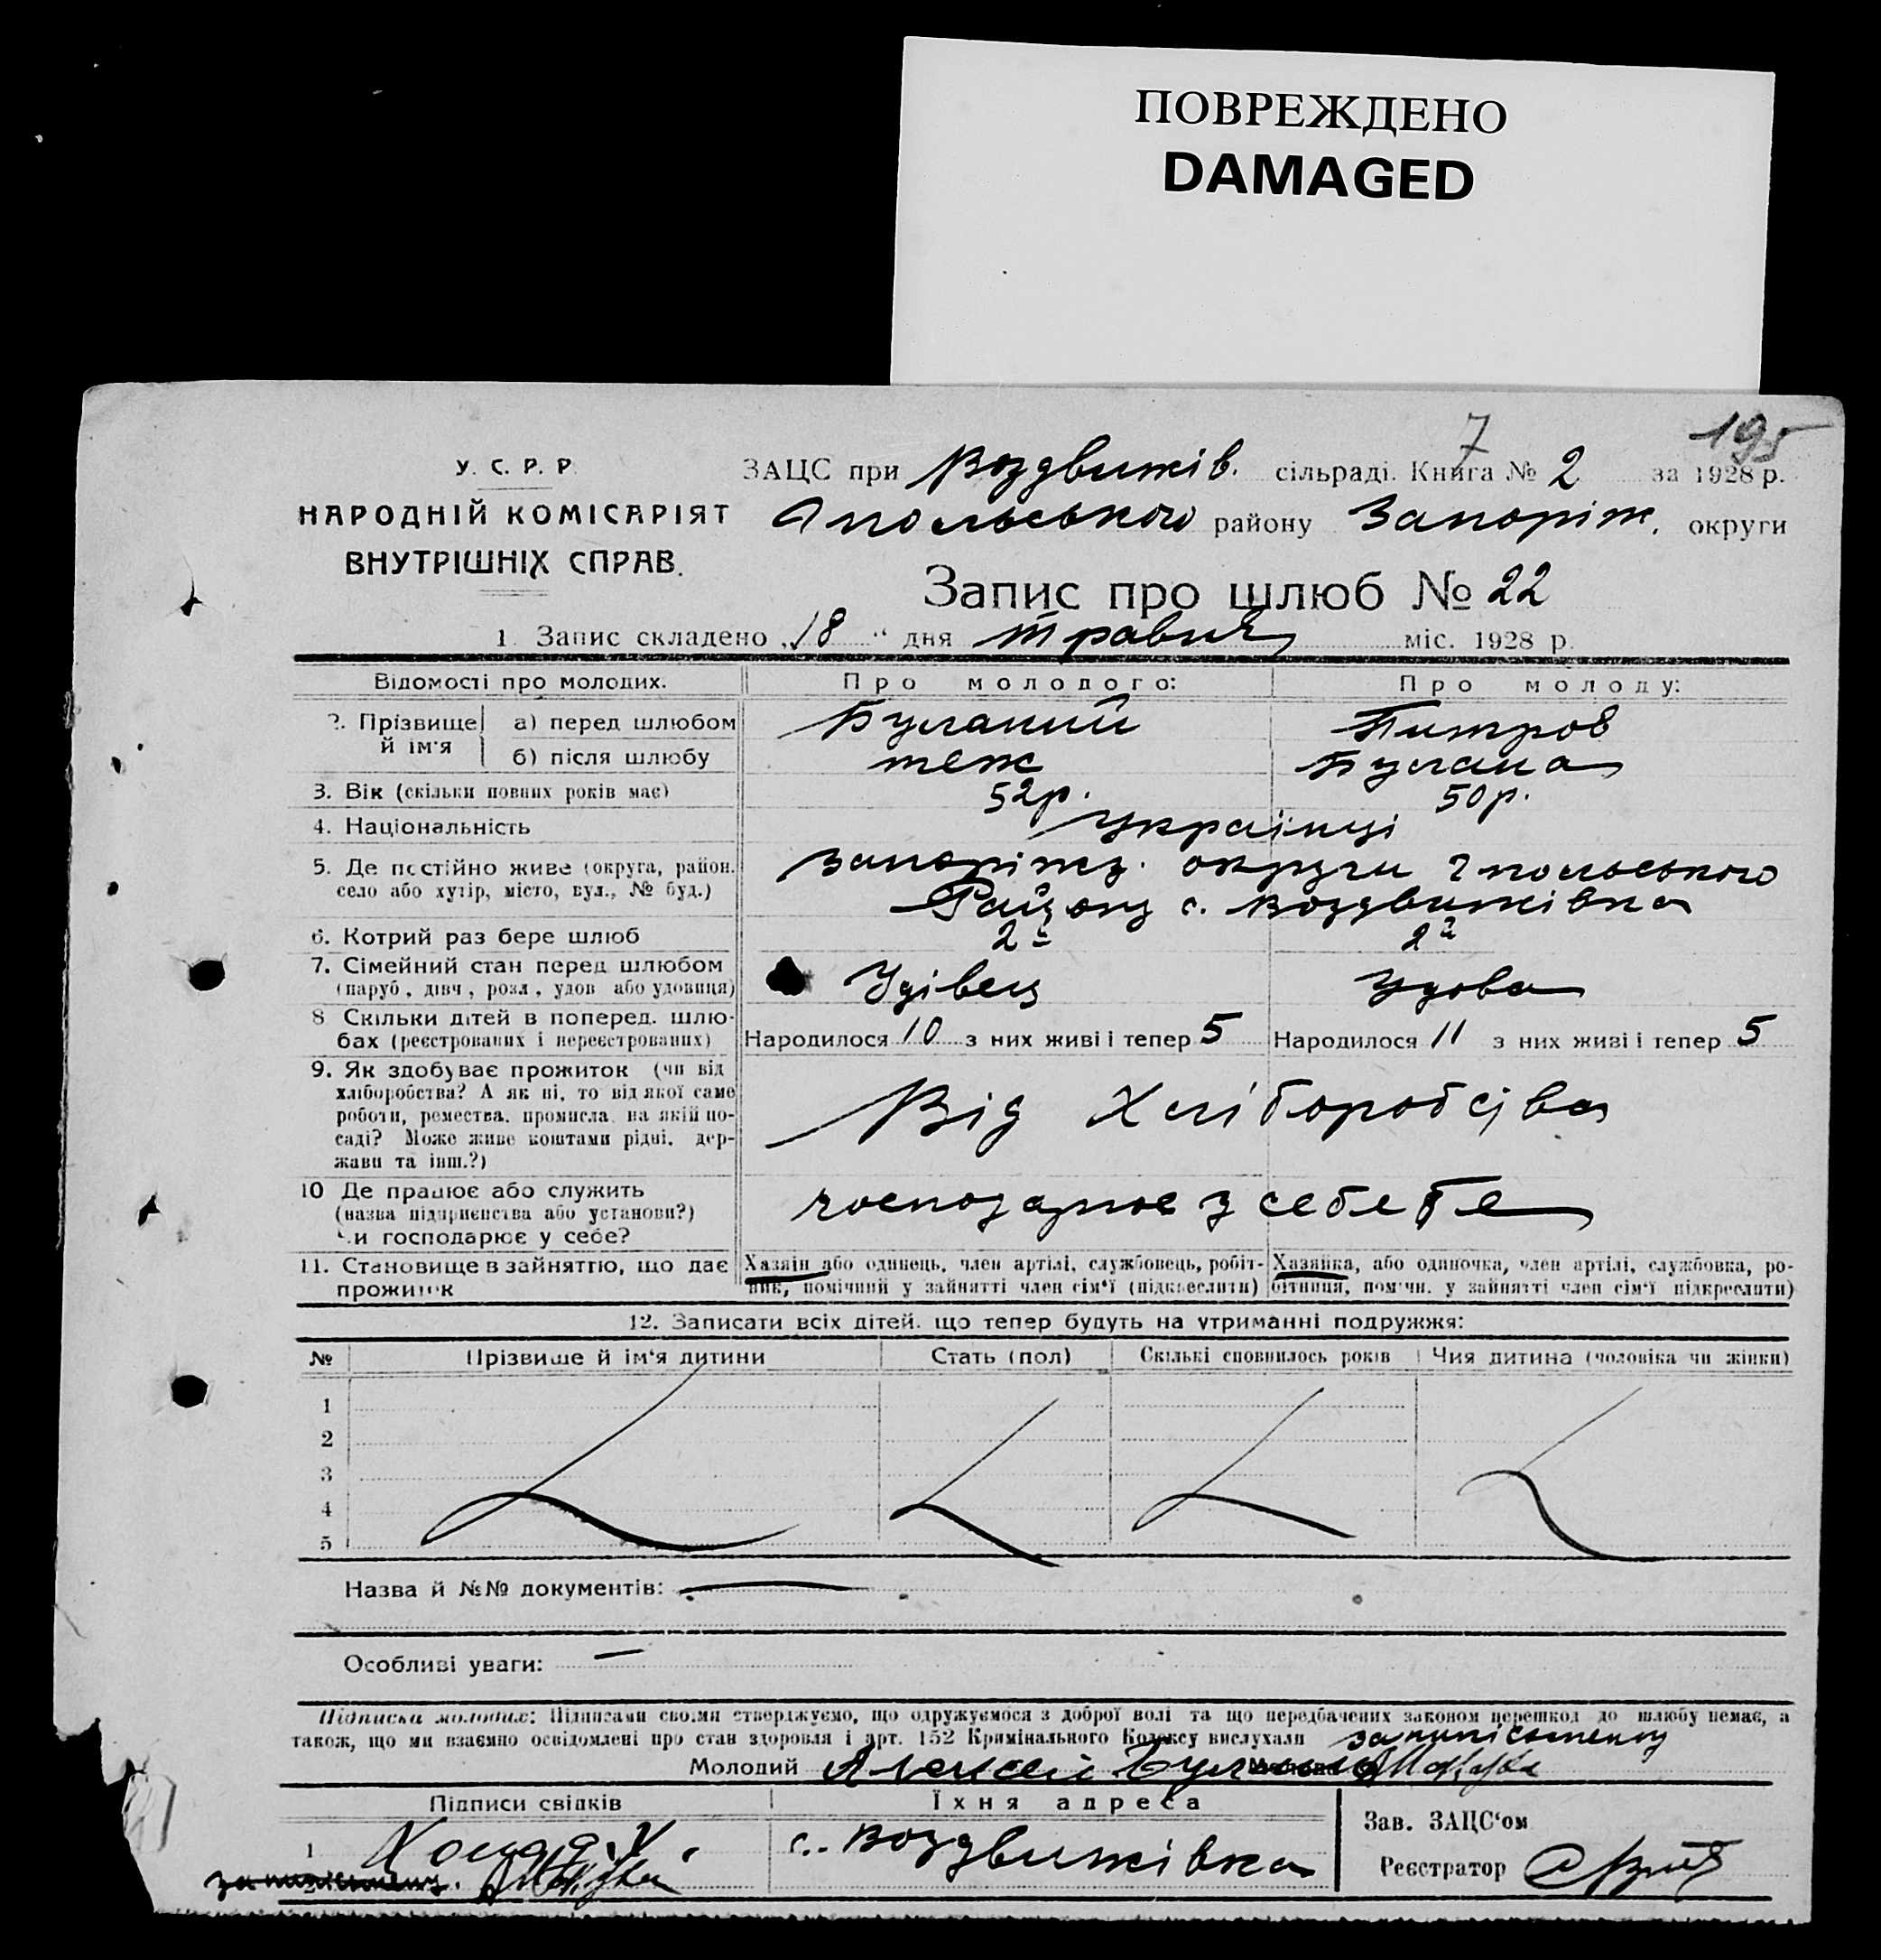 ПОВРЕЖДЕНО
DAMAGED
7
195
У. С. Р. Р.
НАРОДНІЙ КОМІСАРІЯТ
ВНУТРІШНІХ СПРАВ.
ЗАЦС при Воздвижів. сільраді. Книга № 2 за 1928 р.
Гпольського району Запоріж. округи
Запис про шлюб № 22
1. Запис складено „18“ дня травня міс. 1928 р.
Відомості про молодих. Про молодого: Про молоду:
2. Прізвище й ім'я а) перед шлюбом Буланий Питров
б) після шлюбу теж Булана
3. Вік (скільки повних років має) 52 р. 50 р.
4. Національність Українці
5. Де постійно живе (округа, район, Запоріжз. округи Гпольського
село або хутір, місто, вул., № буд.) Району с. Воздвижівка
6. Котрий раз бере шлюб 2й 2й
7. Сімейний стан перед шлюбом
(паруб., дівч., розл., удов. або удовиця) Удівец Удова
8. Скільки дітей в поперед. шлюбах
(реєстрованих і нереєстрованих) Народилося 10 з них живі і тепер 5 Народилося 11 з них живі і тепер 5
9. Як здобуває прожиток (чи від
хліборобства? А як ні, то від якої саме
роботи, ремества, промисла, на якій по- Від Хліборобства
саді? Може живе коштами рідні, дер-
жави та інш.?)
10. Де працює або служить
(назва підприємства або установи?) господарює у себе
Чи господарює у себе?
11. Становище в занятті, що дає Хазяїн або одинець, член артілі, службовець, робіт- Хазяйка, або одиночка, член артілі, службовка, ро-
прожиток ник, помічний у зайнятті член сім'ї (підкреслити) бітниця, помічн. у зайнятті член сім'ї підкреслити)
12. Записати всіх дітей, що тепер будуть на утриманні подружжя:
№ Прізвище й ім'я дитини Стать (пол) Скількі сповнилось років Чия дитина (чоловіка чи жінки)
1
2
3
4
5
Назва й №№ документів:
Особливі уваги:
Підписка молодих: Підписами своїми стверджуємо, що одружуємося з доброї волі та що передбачених законом перешкод до шлюбу немає, а
також, що ми взаємно освідомлені про стан здоровля і арт. 152 Кримінального Кодексу вислухали
Молодий Алексей
Підписи свідків Їхня адреса
Зав. ЗАЦС'ом
1 с. Воздвижівка
Реєстратор